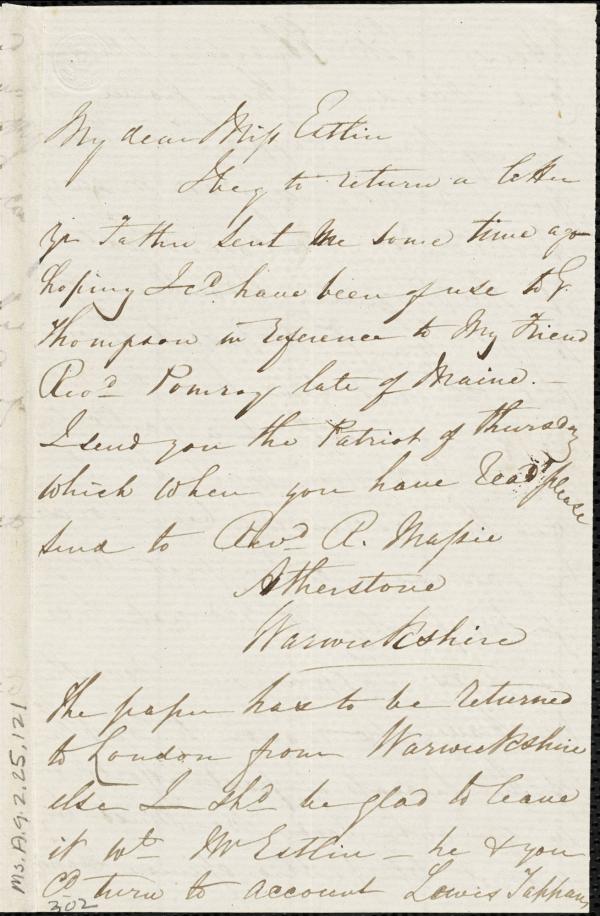 My dear Miss Estlin
I beg to return a letter
yr Father sent me some time ago
hoping I cd have been of use to G.
Thompson in reference to My Friend
Revd Pomroy late of Maine. —
I send you the Patriot of Thursday
which when you have read please
send to Revd R. Massie
Atherstone
Warwickshire
The paper has to be returned
to London from Warwickshire
else I shd be glad to leave
it wt Mr Estlin — he & you
cd turn to account Lewis Tappans
Ms.A.9.2.25,121
302